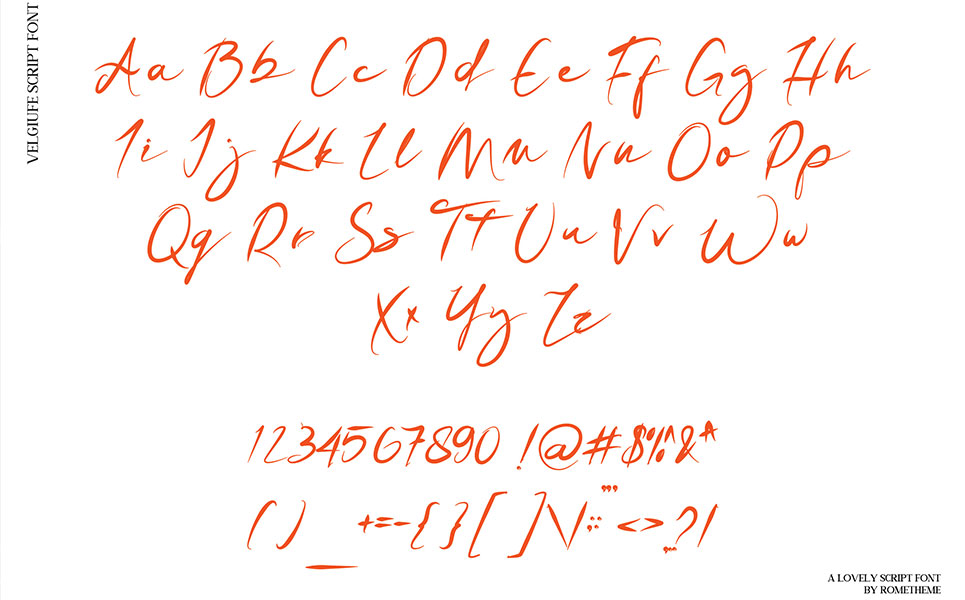 VELGIUFE SCRIPT FONT
Aa Bb Cc Dd Ee Ff Gg Hh
Ii Jj Kk Ll Mm Nn Oo Pp
Qq Rr Ss Tt Uu Vv Ww
Xx Yy Zz
1234567890 !@#$%^&*
( ) _ +=-{ } [ ] \/ :; ”’ <> ,... ? /
A LOVELY SCRIPT FONT
BY ROMETHEME